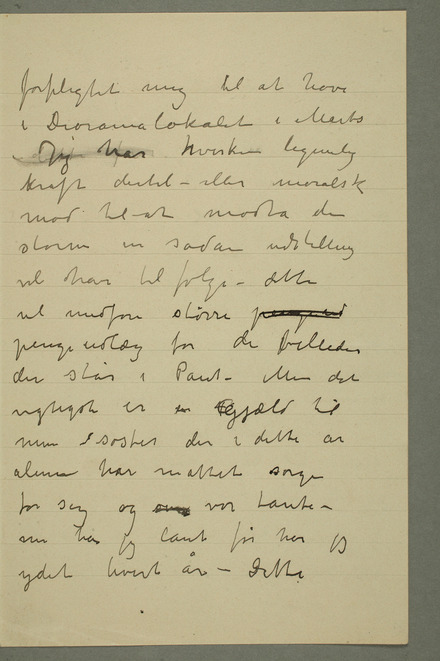 forpligtet mig til at have
i Dioramalokalet i Marts
– Jeg har hverken legemlig
kraft dertil – eller moralsk
mod til at modta den
storm en sådan udstilling
vil har til følge – dette
vil medføre større
pengeudlæg for de billeder
der står i Pant – Men det
vigtigste er en Gjæld til
min søster der i dette år
alene har måttet sørge
for sig og vor tante –
nu har jeg lånt før har jeg
ydet hvert år – Dette